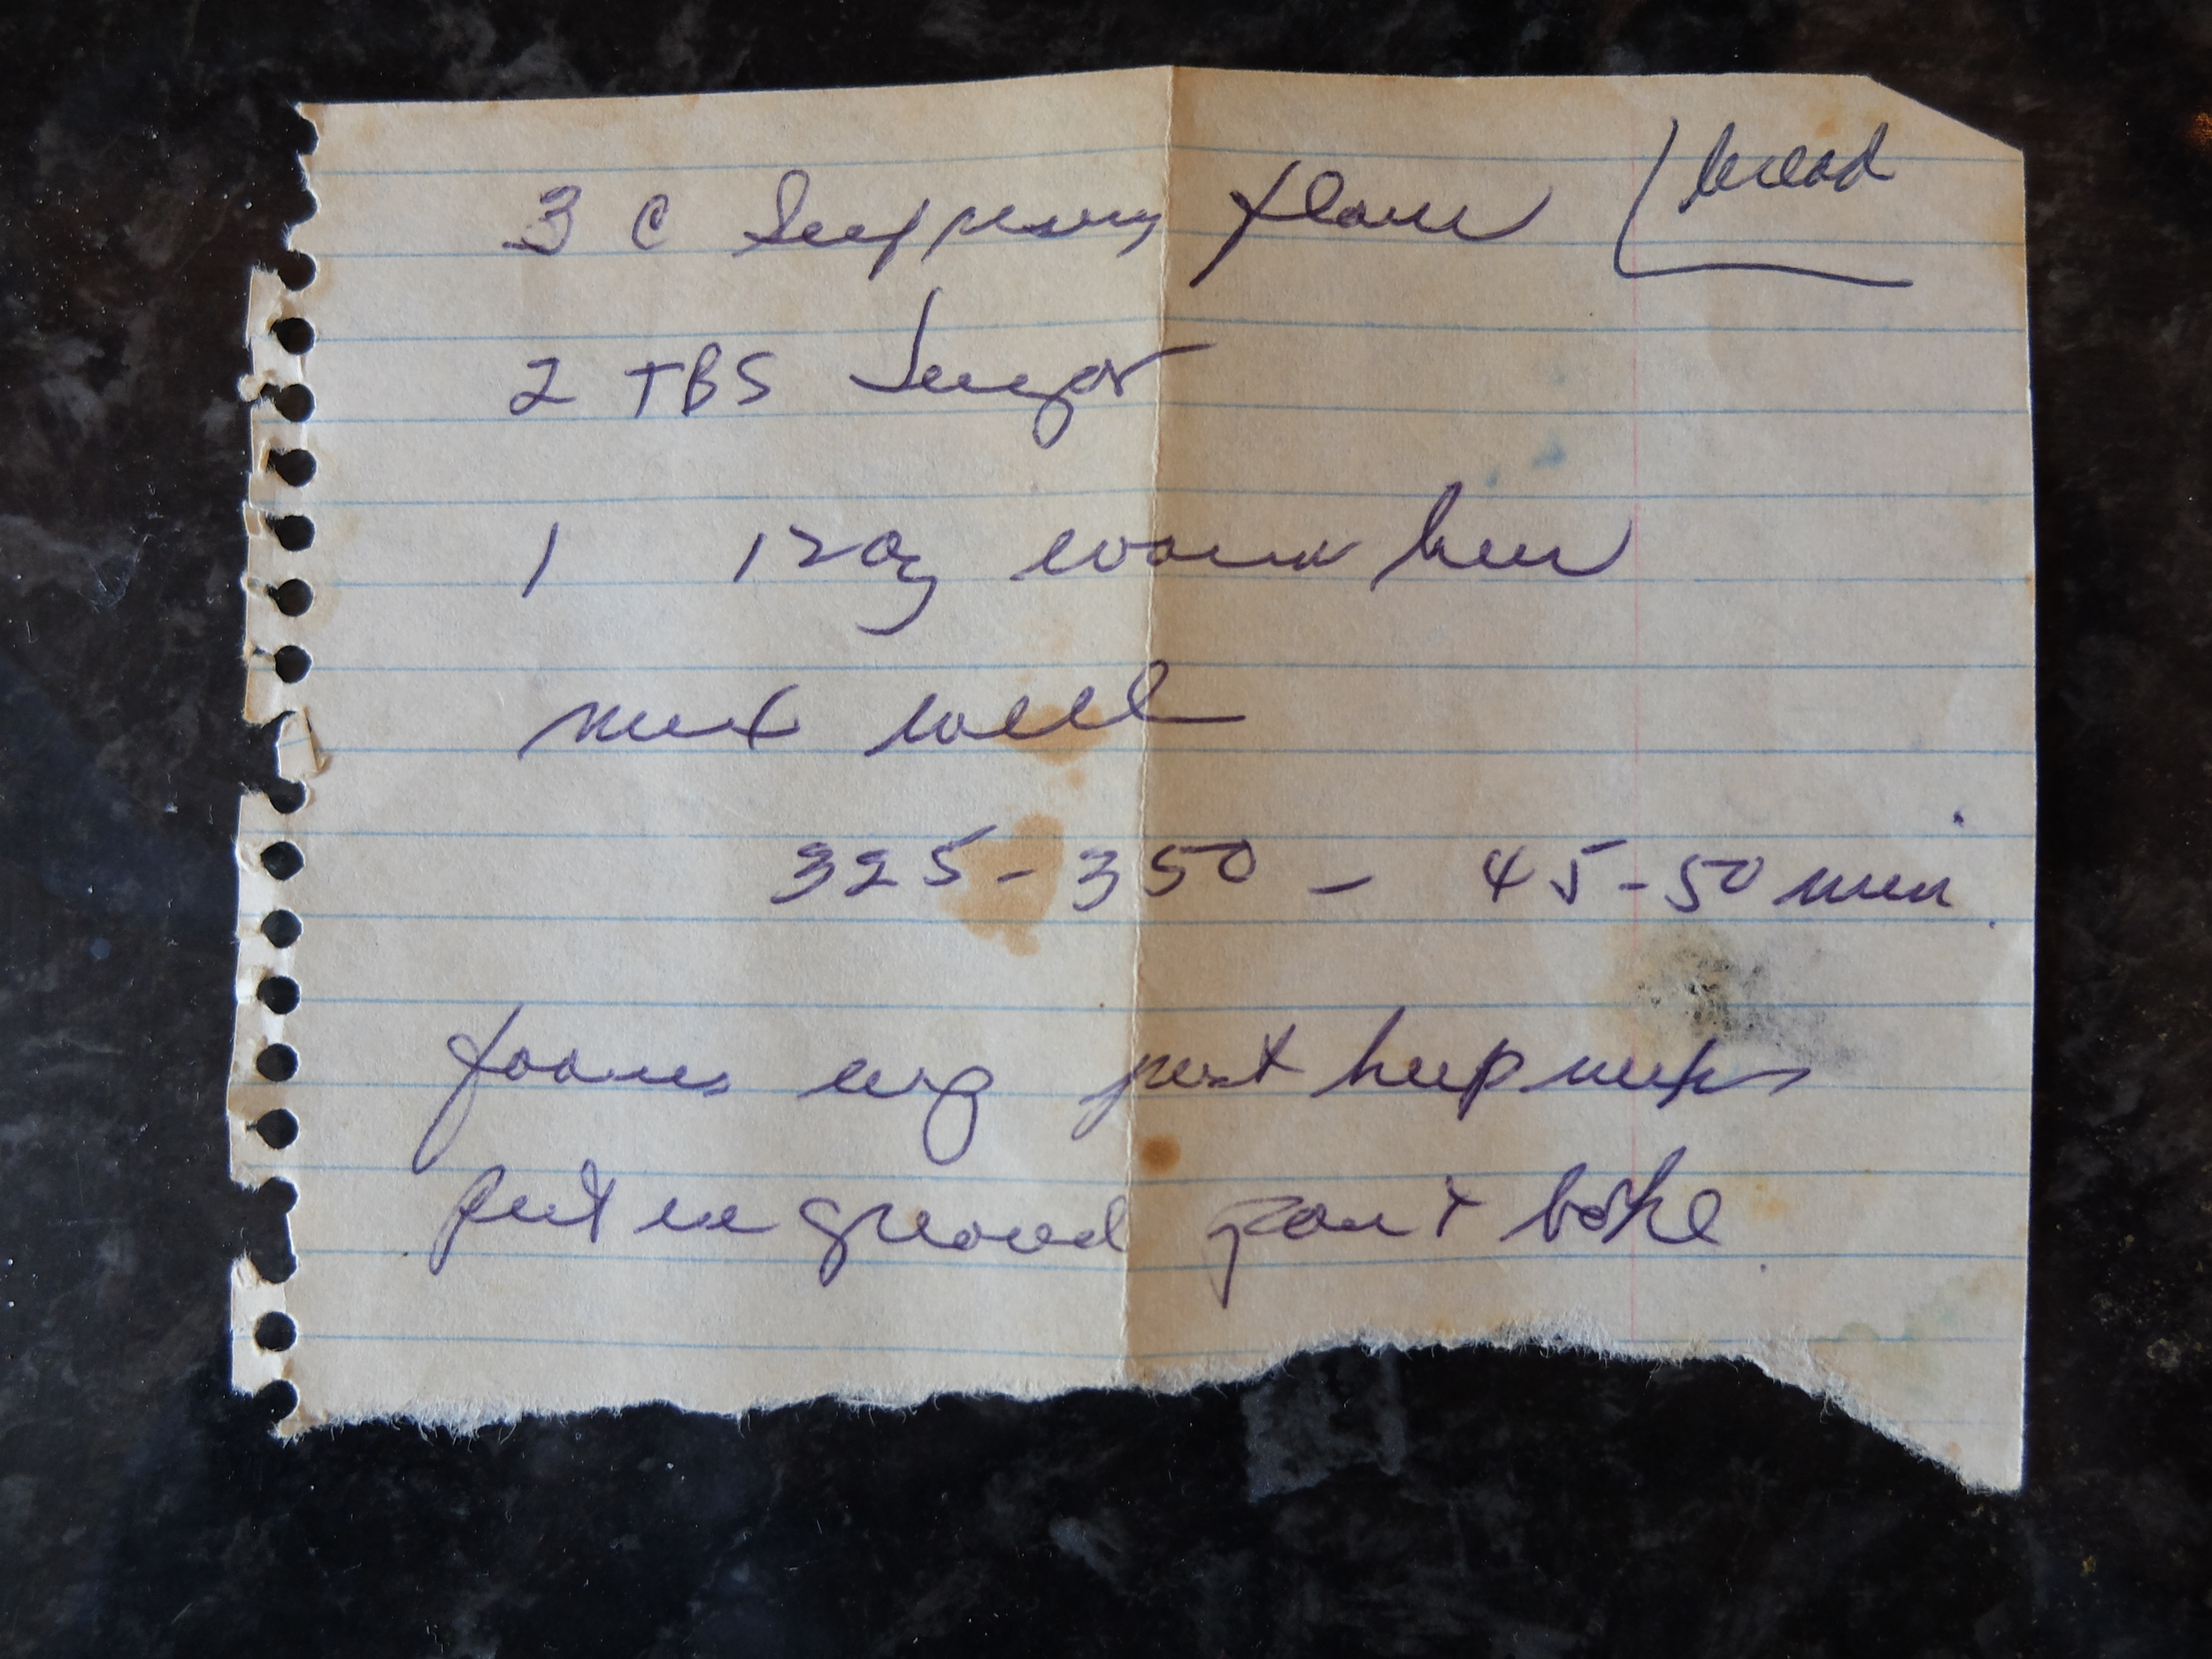 bread
3 C Self rising flour
2 TBS Sugar
1 12oz warm beer
mix well
325-350 - 45-50 min
foams up just keep mixing
put in greased pan & bake